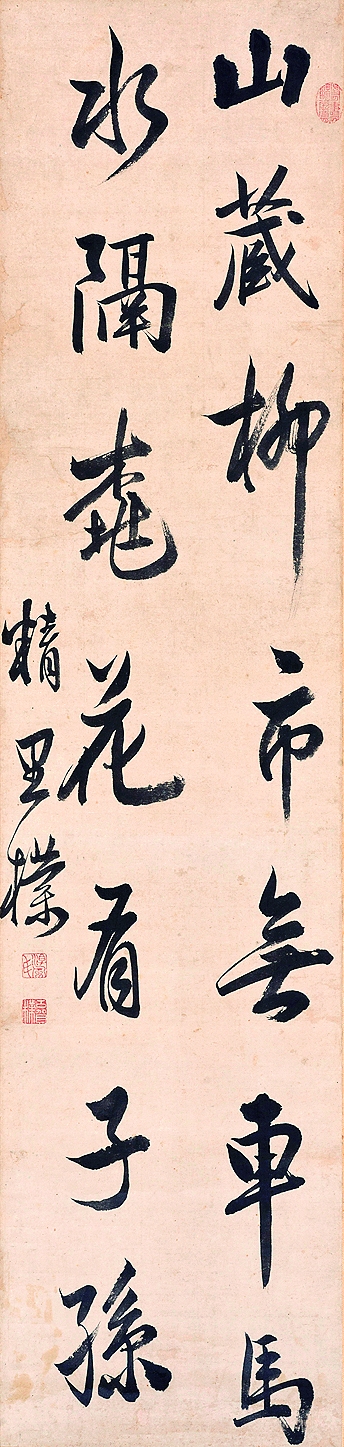 山藏柳市無車馬
水隔桃花有子孫
精里樸